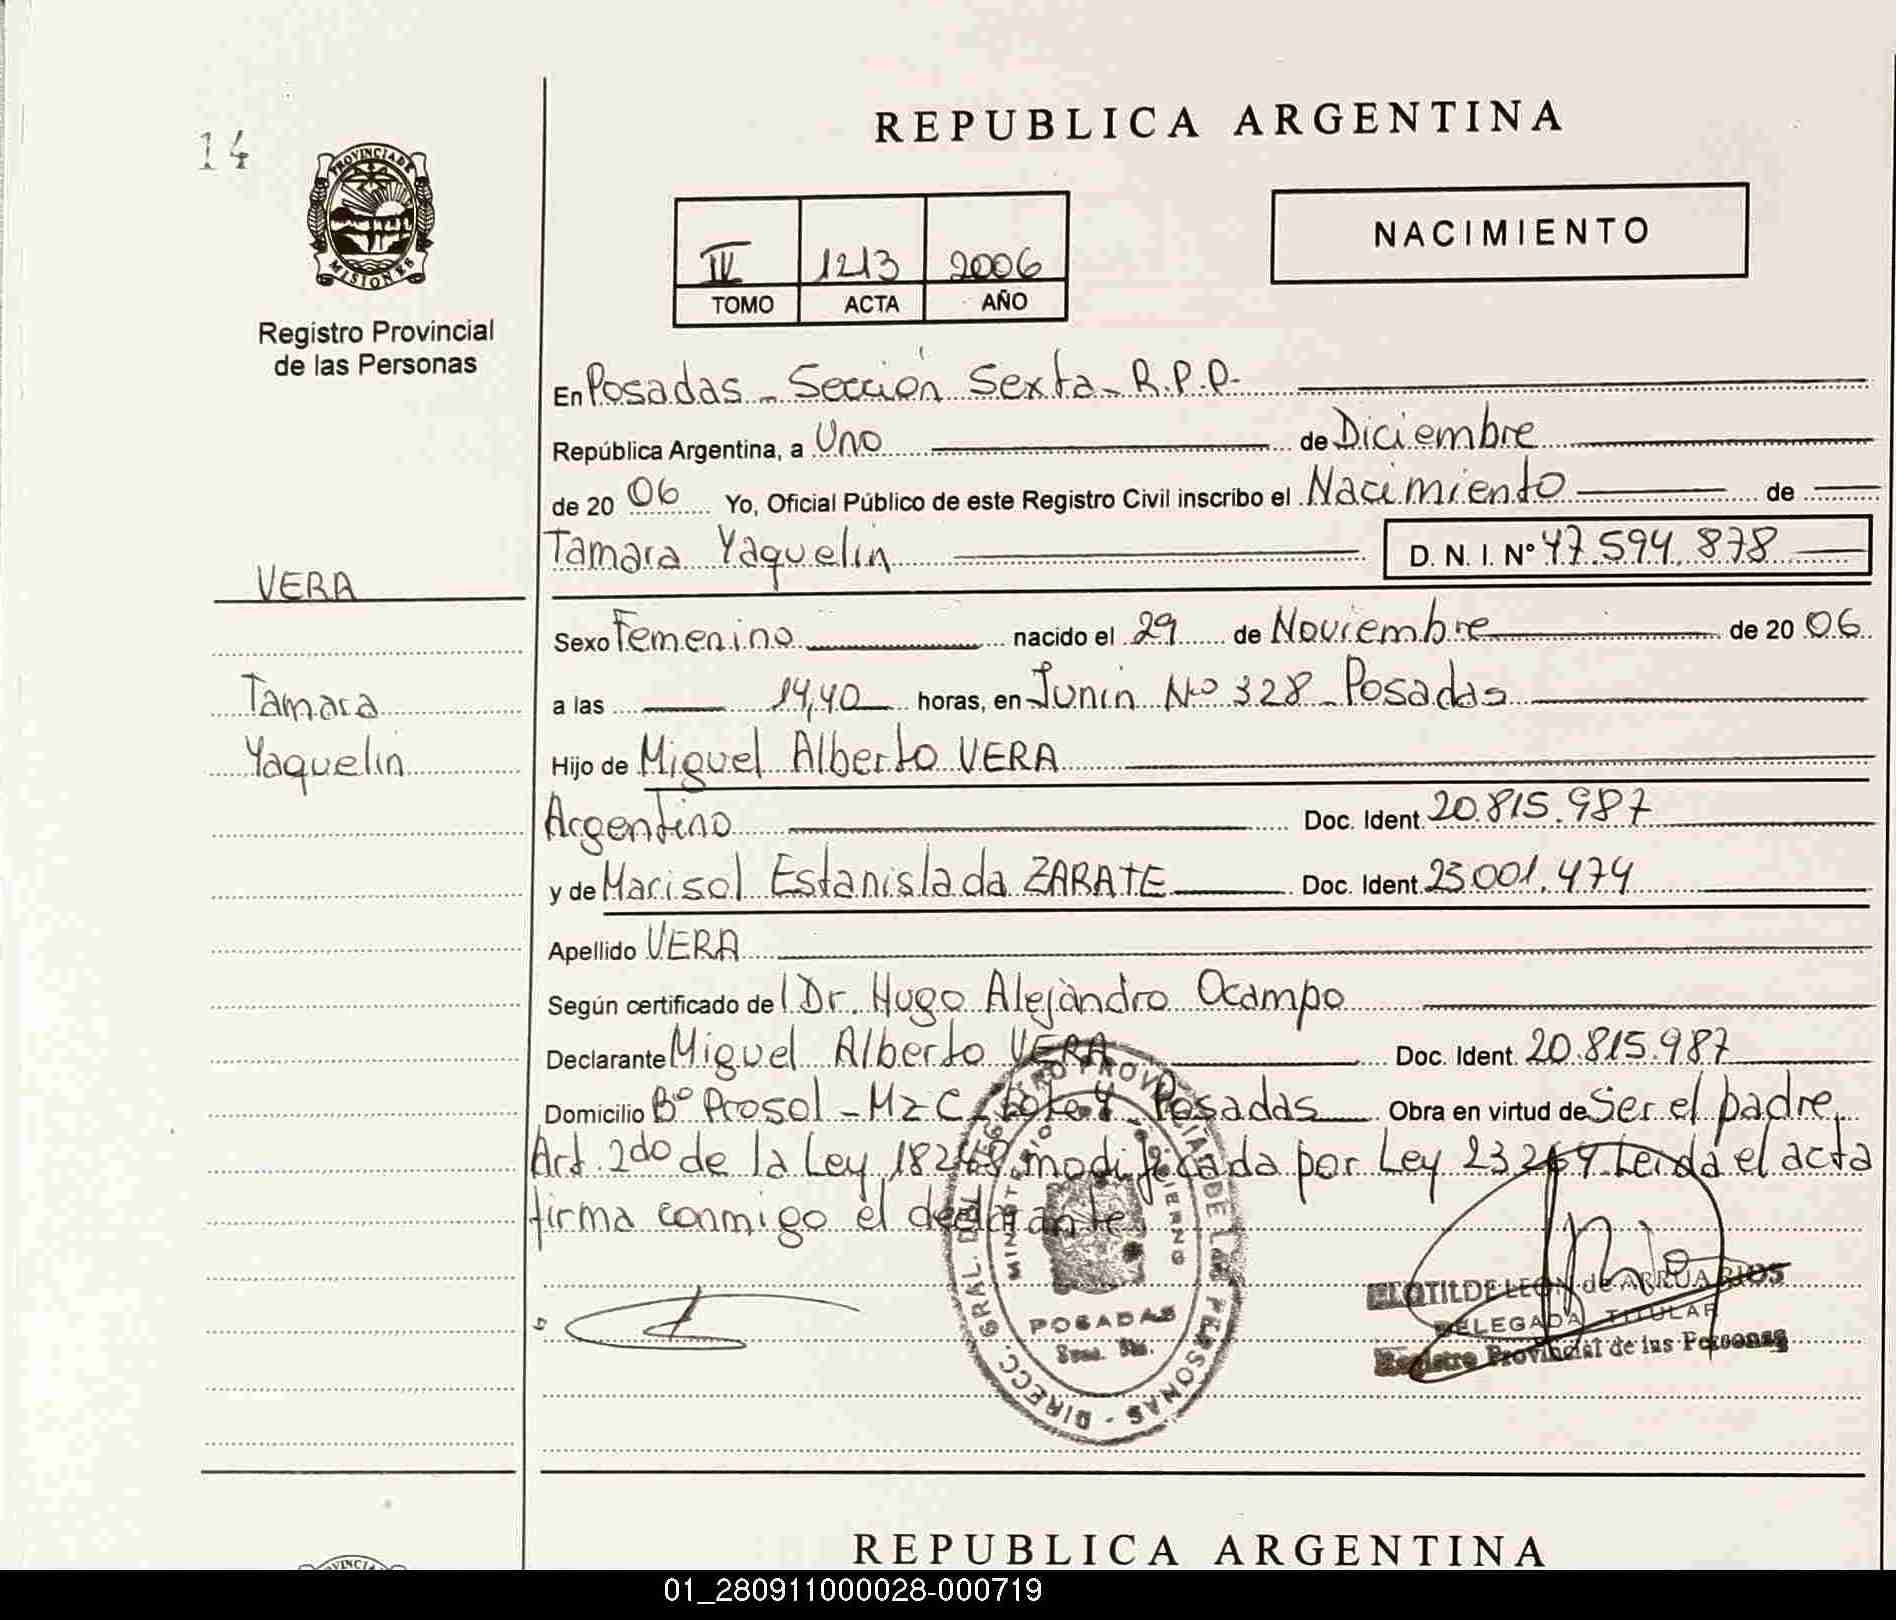 14
PROVINCIA DE
MISIONES
Registro Provincial
de las Personas
REPUBLICA ARGENTINA
NACIMIENTO
IV 1213 2006
TOMO ACTA AÑO
En Posadas - Sección Sexta - R.P.P.
República Argentina, a Uno de Diciembre
de 2006 Yo, Oficial Público de este Registro Civil inscribo el Nacimiento de
Tamara Yaquelin D. N. I. Nº 47.594.878
VERA
Sexo Femenino nacido el 29 de Noviembre de 2006
Tamara
a las 14,40 horas, en Junin Nº 328 - Posadas
Yaquelin
Hijo de Miguel Alberto VERA
Argentino Doc. Ident. 20.815.987
y de Marisol Estanislada ZARATE Doc. Ident. 25.001.474
Apellido VERA
Según certificado del Dr. Hugo Alejandro Ocampo
Declarante Miguel Alberto VERA Doc. Ident. 20.815.987
Domicilio Bº Prosol - Mz C - Lote Posadas Obra en virtud de Ser el padre,
Art. 2do de la Ley 18248 modificada por Ley 23264. Leida el acta
firma conmigo el declarante
DIRECC. GRAL. DEL REGISTRO PROVINCIAL DE LAS PERSONAS -
MINISTERIO DE GOBIERNO
POSADAS
CLOTILDE LEON de ARRUA RIOS
DELEGADA TITULAR
Registro Provincial de las Personas
REPUBLICA ARGENTINA
01_280911000028-000719